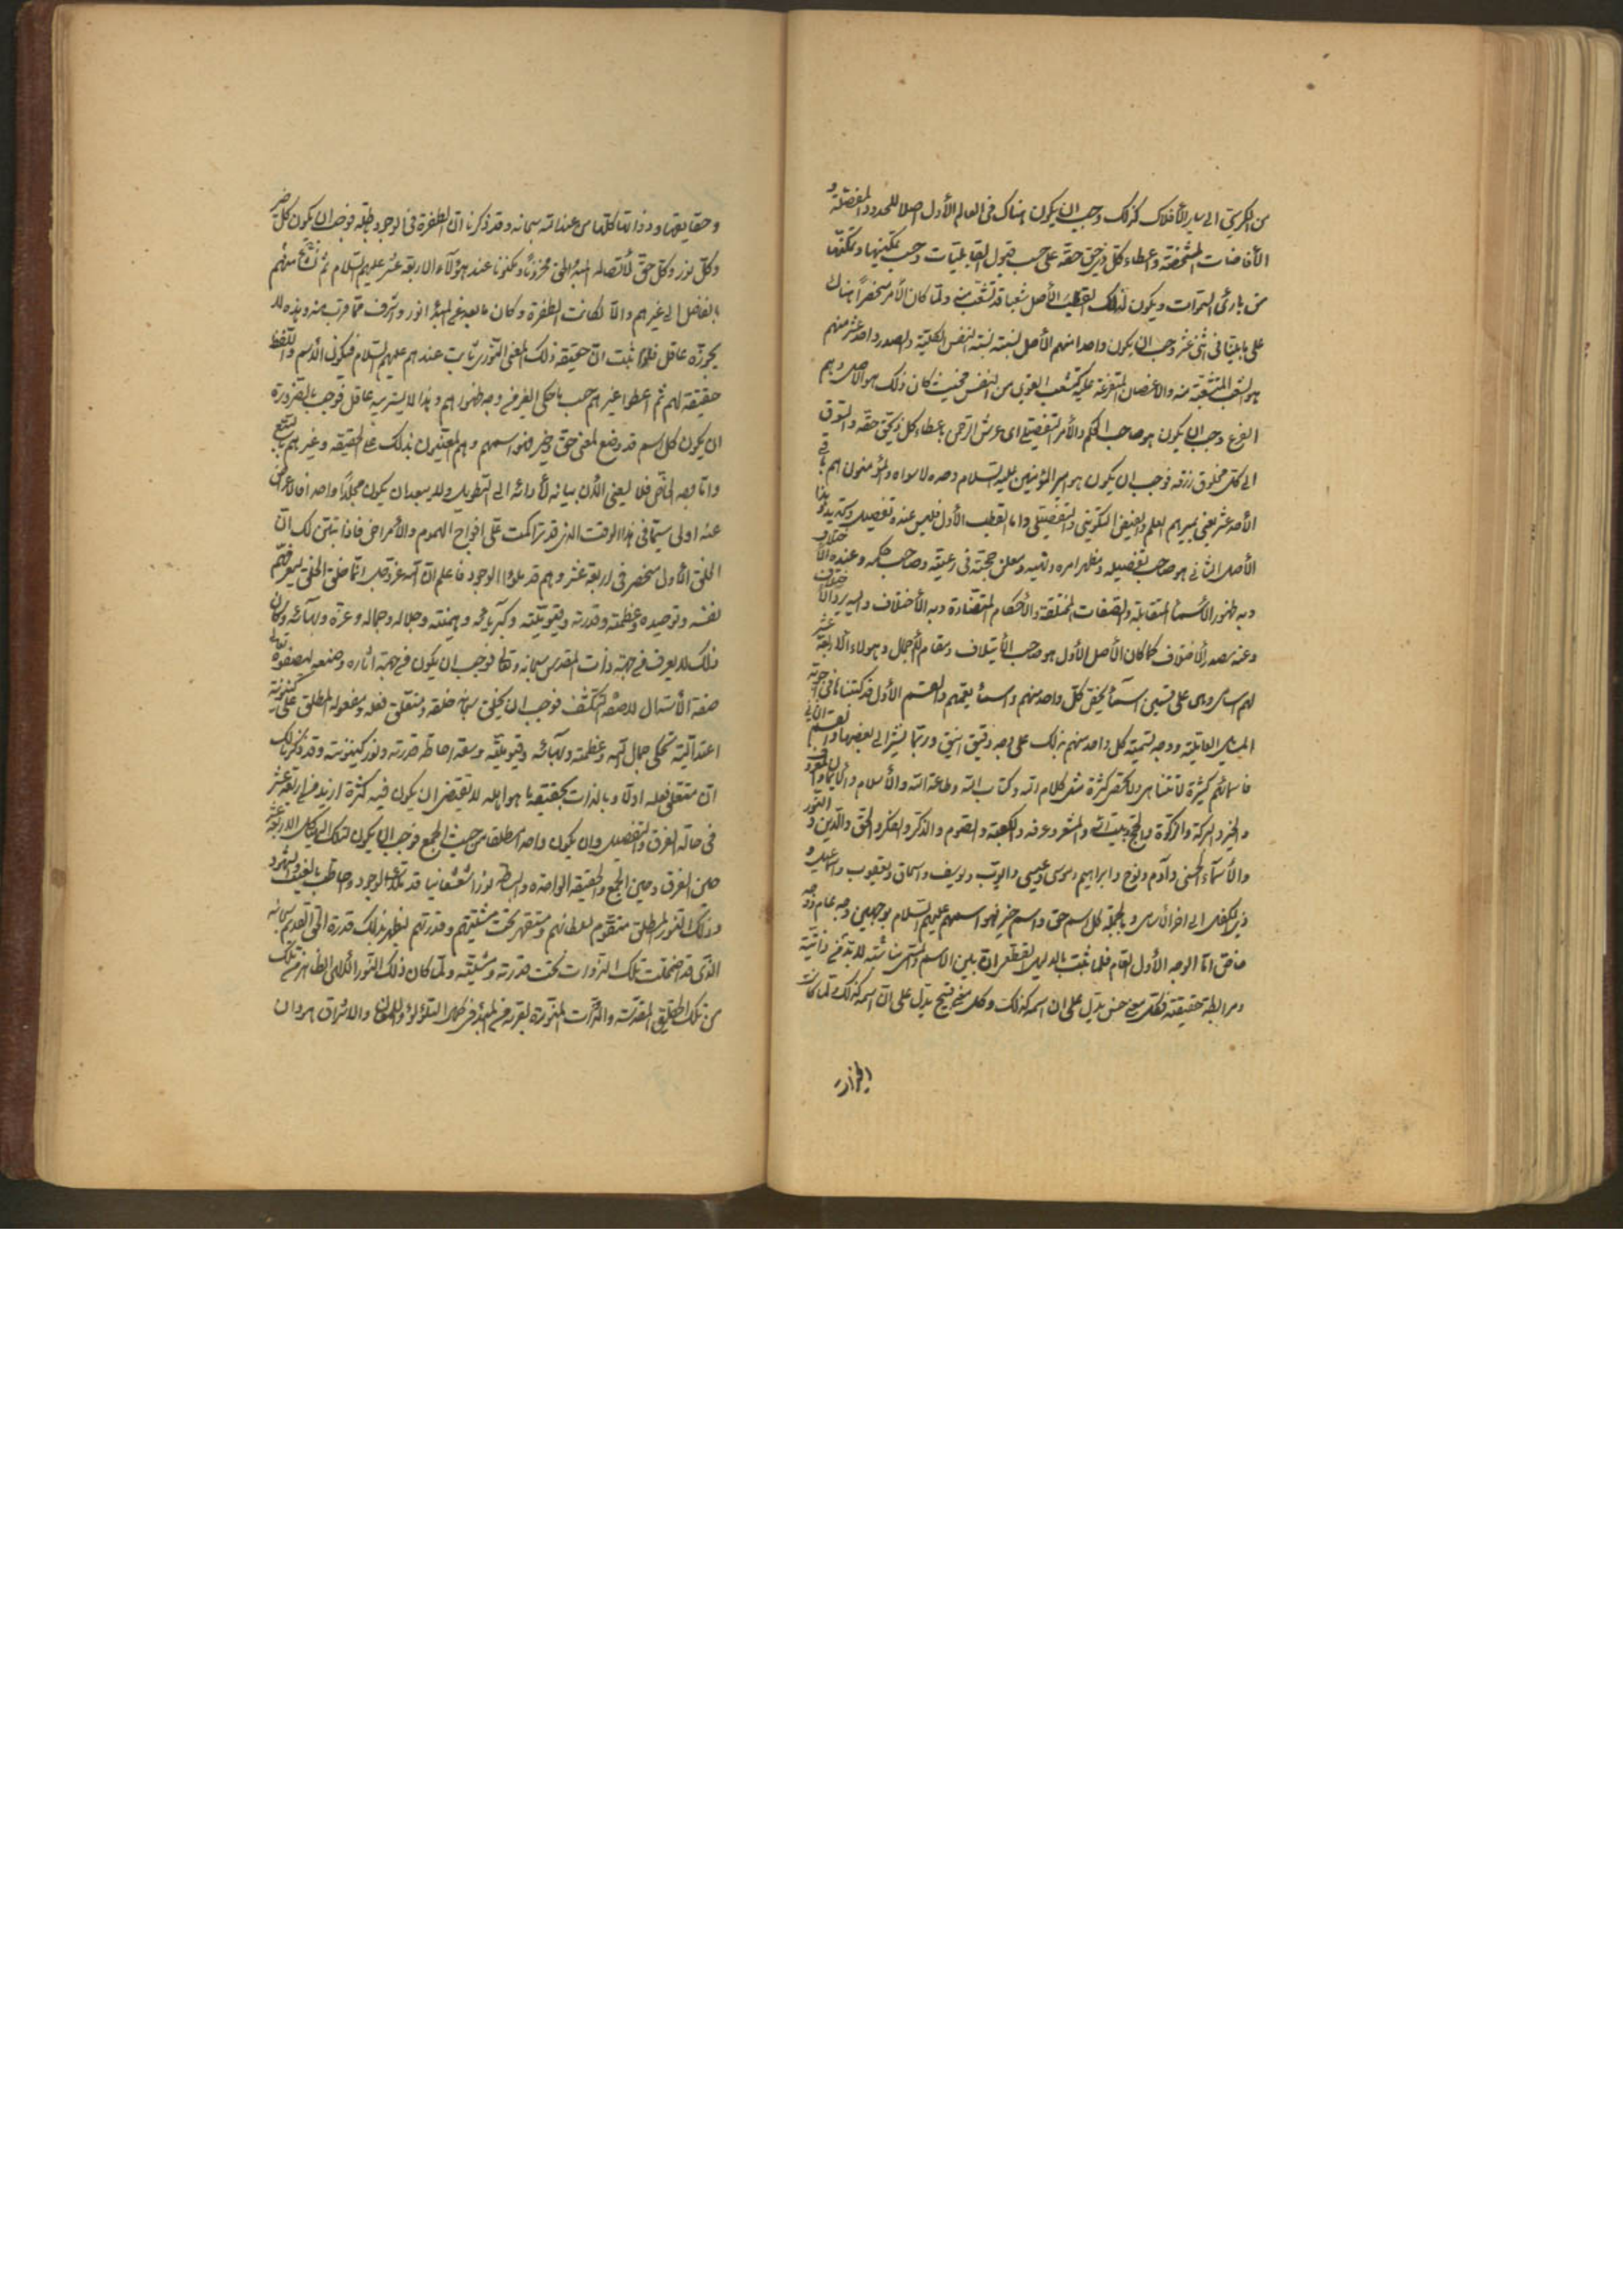 من الكرسي الى ساير الأفلاك كذلك وجب ان يكون هناك في العالم الأول اصلا للحدود المفصلة و
الأفاضات المشخصة واعطاء كل ذي حق حقه على حسب قبول القابليات وحسب تمكينها وتمكنها
من بارئ السموات ويكون لذلك القطب الأصل شعبا قد تشعب منه ولما كان الأمر منحصرا هناك
على ما بينا في اثنى عشر وجب ان يكون واحدا منهم الأصل نسبته نسبة النفس الكلية والصدر واحد عشر منهم
هو الشعب المتشعبة منه والاغصان المتفرعة عليه كتشعب القوى من النفس فحيث كان ذلك هو الاصل وهم
الفرع وجب ان يكون هو صاحب الحكم والأمر التفصيلي اي عرش الرحمن باعطاء كل ذي حق حقه والسوق
الى كل مخلوق رزقه فوجب ان يكون هو امير المؤمنين عليه السلام وحده لا سواه والمؤمنون هم باقي
الأحد عشر يعني يميرهم العلم والفيض التكويني والتفصيلي واما القطب الأول فليس عنده تفصيل وتحديد
الأصل الثاني هو صاحب تفصيله ومظهر امره ونهيه ومعلن حجته في رعيته وصاحب حكمه وعنده الأختلاف
وبه ظهور الأسماء المتقابلة والصفات المختلفة والأحكام المتضادة وبه الأختلاف واليه يرد الأختلاف
وعنه يصدر الأختلاف كما كان الأصل الأول هو صاحب الأيتلاف ومقام الأجمال وهولاء الاربعة عشر
لهم اسامي وهي على قسمين اسماء يخص كل واحد منهم واسماء يعمهم والقسم الأول قد كتبنا في اجوبة
المسايل العاتلية ووجه تسمية كل واحد منهم بذلك على وجه دقيق انيق وربما نشير الى بعضها والقسم الثاني
فاسمائهم كثيرة لا تتناهى ولا تحصر كثرة مثل كلام الله وكتاب الله وطاعة الله والأسلام والأيمان والمعروف
والخير والبركة والزكوة والحج وبيت الله والمشعر وعرفه والكعبة والصوم والذكر والفكر والحق والدين والنور
والأسماء الحسنى وآدم ونوح وابراهيم وموسى وعيسى وايوب ويوسف واسحاق ويعقوب واسماعيل و
ذي الكفل الى اخر الأسامي وبالجملة كل اسم حق واسم خير فهو اسمهم عليهم السلام بوجهين وجه عام ووجه
خاص اما الوجه الأول العام فلما ثبت بالدليل القطعي ان بين الاسم والمسمى مناسبة لا بد من ذاتية
ومرابطة حقيقية فكل معنى حسن يدل على ان اسمه كذلك وكل معنى قبيح يدل على ان اسمه كذلك ولما كانت
وحقايقها وذواتها كلها من عند الله سبحانه وقد ذكرنا ان الطفرة في الوجود باطلة فوجب ان يكون كل خير
وكل نور وكل حق لأتصاله المبدء الحق مخزونا ومكنونا عند هؤلآء الاربعة عشر عليهم السلام ثم منهم
بالفاضل الى غيرهم والا لكانت الطفرة وكان ما بعد عن المبدء انور واشرف مما قرب منه وهذه لا
يجوزه عاقل فلما ثبت ان حقيقة ذلك المعنى النوري ثابت عندهم عليهم السلام فيكون الأسم واللفظ
حقيقة لهم ثم اعطوا غيرهم حسب ما حكى الغير من وجه ظهورهم وهذا لا يستريبه عاقل فوجب بالضرورة
ان يكون كل اسم قد وضع لمعنى حق وخير فهو اسمهم وهم المعنيون بذلك على الحقيقة وغيرهم بالتبع
واما وجه الخاص فلا يعنى الأن بيانه لأدائه الى التطويل ولا يبعد ان يكون مجلدا واحدا فالاعراض
عنه اولى سيما في هذا الوقت الذي قد تراكمت علي افواج الهموم والأمراض فاذا تبين لك ان
الخلق الأول منحصر في اربعة عشر وهم قد ملؤا الوجود فاعلم ان الله عز وجل انما خلق الخلق ليعرفهم
نفسه وتوحيده وعظمته وقدرته وقيوميته وكبريائه وهيمنته وجلاله وجماله وعزه وبهائه وكان
ذلك لا يعرف من جهة ذات المقدس سبحانه وتعالى فوجب ان يكون من جهة اثاره وصنعه ليصفوه تعالى
صفة الأستدلال لا صفة التكشف فوجب ان يخلق سبحانه خلقه ومتعلق فعله ومفعوله المطلق على كينونة
اعتدالية تحكي جمال الله وعظمته وبهائه وقيوميته وسعة احاطة قدرته ونور كينونته وقد ذكرنا لك
ان متعلق فعله اولا وبالذات بحقيقة ما هو اهله لا تقتضي ان يكون فيه كثرة ازيد من اربعة عشر
في حالة الفرق والتفصيل وان يكون واحدا مطلقا من حيث الجمع فوجب ان يكون لتلك الهياكل الاربعة عشر
حين الفرق وحين الجمع والحقيقة الواحدة والبساطة نورا شعشعانيا قد ملأ الوجود واحاط بالغيب والشهود
وذلك النور المطلق متقوم لسلطانهم ومنقهر تحت مشيتهم وقدرتهم لظهر بذلك قدرة الحق القديم سبحانه
الذي قد اضمحلت تلك الذوات تحت قدرته ومشيته ولما كان ذلك النور الكلي الظاهر من تلك
من تلك الحقايق المقدسة والذوات المنورة لقربه من المبدء في كمال التلؤلؤ واللمعان والاشراق اراد ان